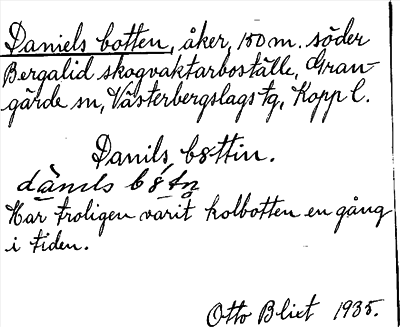 Daniels botten, åker, 150 m. söder
Bergalid skogvaktarboställe, Gran-
gärde sn, Västerbergslags tg, Kopp l.
Danils bottin.
Har troligen varit kolbotten en gång
i tiden.
Otto Blixt 1935.